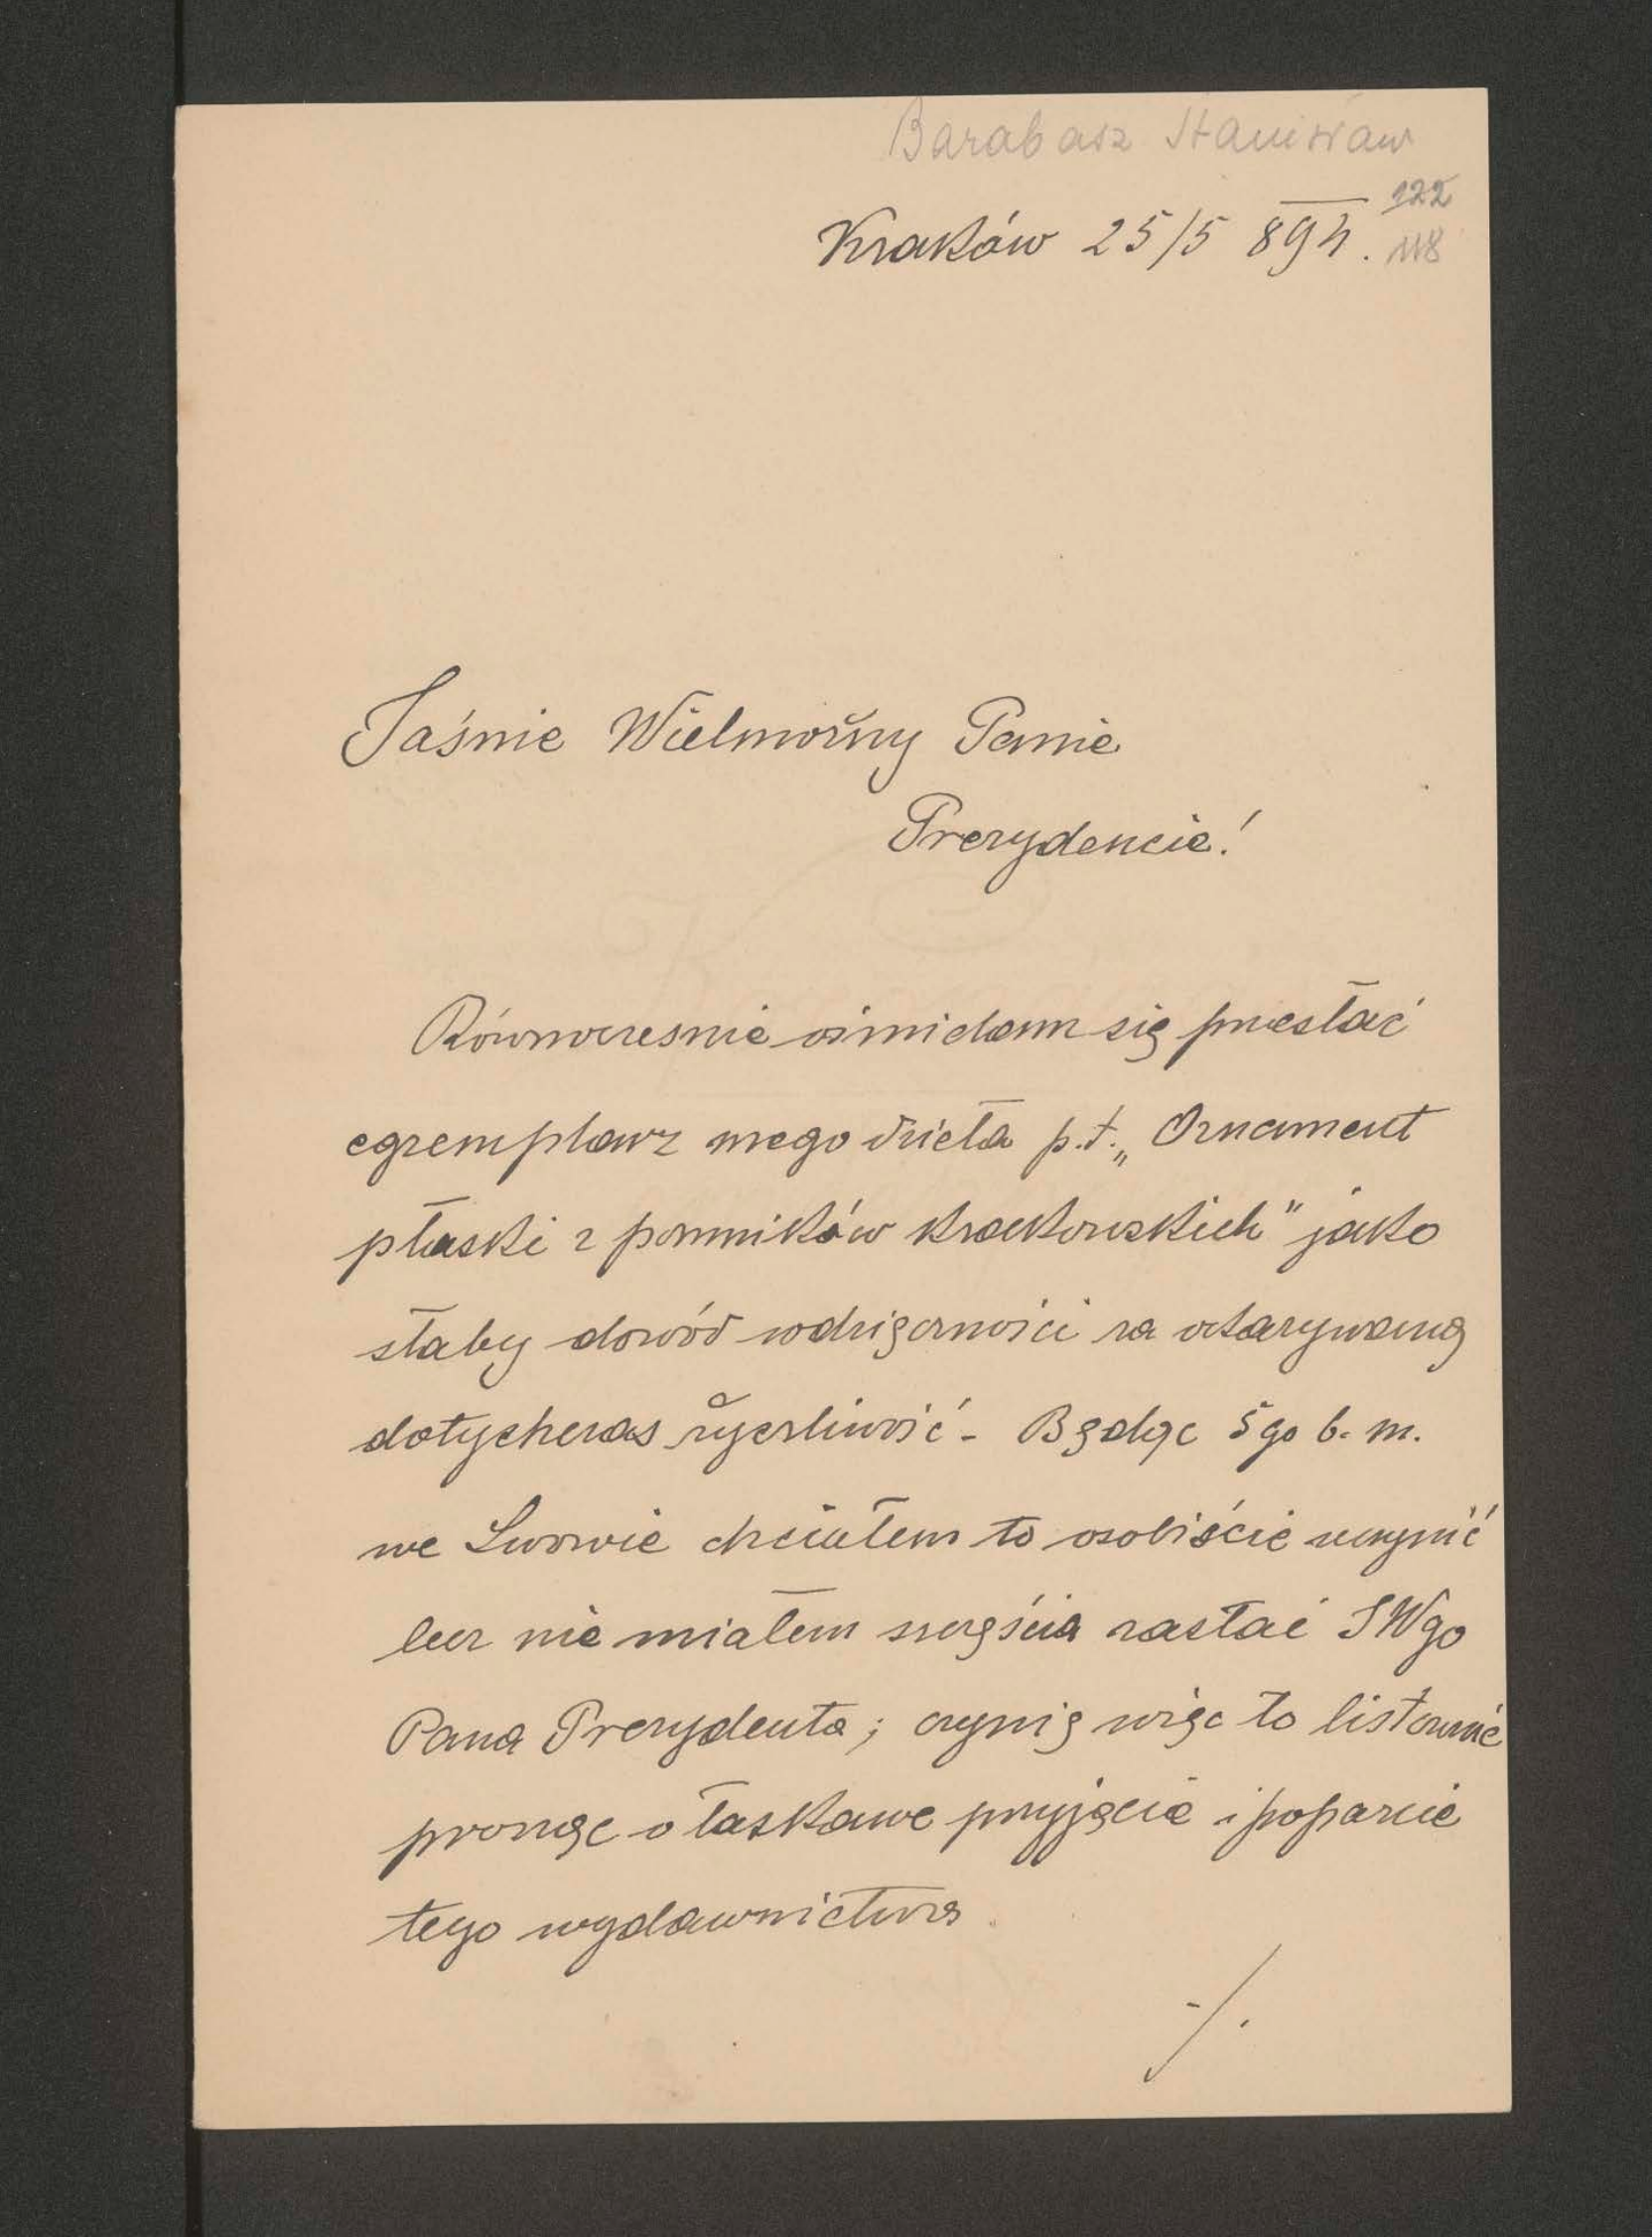 Barabasz Stanisław
122
Kraków 25/5 894. 118
Jaśnie Wielmożny Panie
Prezydencie!
Równocześnie ośmielam się przesłać
egzemplarz mego dzieła p.t. „Ornament
płaski z pomników krakowskich" jako
słaby dowód wdzięczności za okazywaną
dotychczas życzliwość - Będąc 5go b. m.
we Lwowie chciałem to osobiście uczynić
lecz nie miałem szczęścia zastać JWgo
Pana Prezydenta; czynię więc to listownie
prosząc o łaskawe przyjęcie i poparcie
tego wydawnictwa.
./.